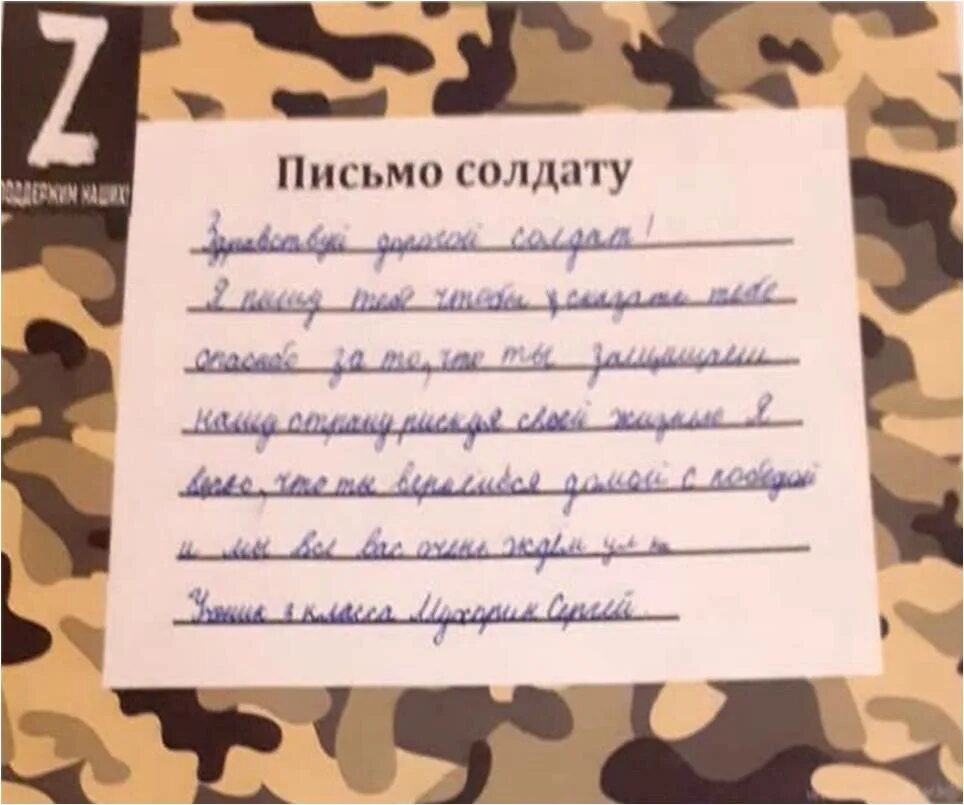 Z
ПОДДЕРЖИМ НАШИХ!
Письмо солдату
Здравствуй дорогой солдат!
Я пишу тебе чтобы сказать тебе
спасибо за то, что ты защищаеш
нашу страну рискуя своей жизнью Я
верю, что ты вернёшься домой с победой
и мы все вас очень ждём
Ученик 3 класса Мухорин Сергей.